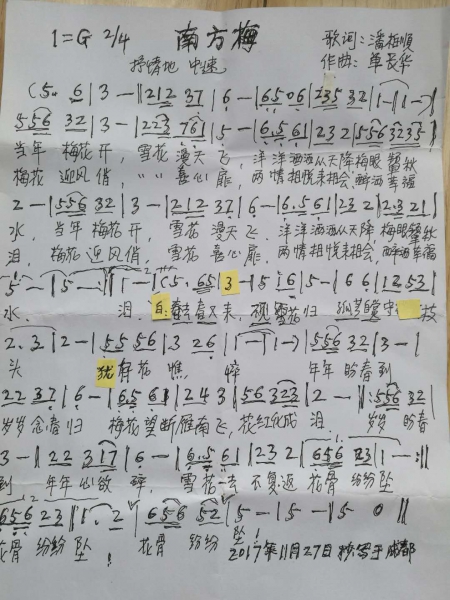 1=G 2/4 南方梅 歌词:潘相顺
抒情地 中速 作曲:单长华
(5. 6|3 -|212 37|6 -|65 06|235 32|1 -|1 -)|
556 32|3 -|223 761|5 -|6.561|232|556 3235|
当年 梅花开, 雪花漫天飞, 洋洋洒洒从天降梅眼蘸秋
梅花 迎风俏, 〃〃喜心扉, 两情相悦来相会 醉洒幸福
2 -|556 32|3 -|212 37|6 -|6.561|232|2.321|
水, 当年梅花开, 雪花漫天飞. 洋洋洒洒从天降 梅眼蘸秋
泪, 梅花迎风俏, 雪花喜心扉, 两情相悦来相会 醉洒幸福
5 -|5 -|1 -|(5. 65|3 -|5 16|5 -|6 6|12 53|
水. 泪. 自: 春去春又来, 观雪花归 枝
2. 3|2 -|5 5 56|3 26|1 -|1 -)|556 32|3 -|
头 犹存花憔 悴 年年盼春到
22 37|6 -|6561|243|56 323|2 -|:556 32|
岁岁念春归 梅花望断雁南飞, 花红化成泪. 岁岁盼春
3 -|22 317|6 -|6.561|232|656 23|1 -:|
到 年年心欲碎, 雪花一去不复返 花骨纷纷坠
656 23|1. 2|656 52|5 -|5 -|5 0||
花骨纷纷坠! 花骨纷纷坠!
2017年11月27日抄写于成都